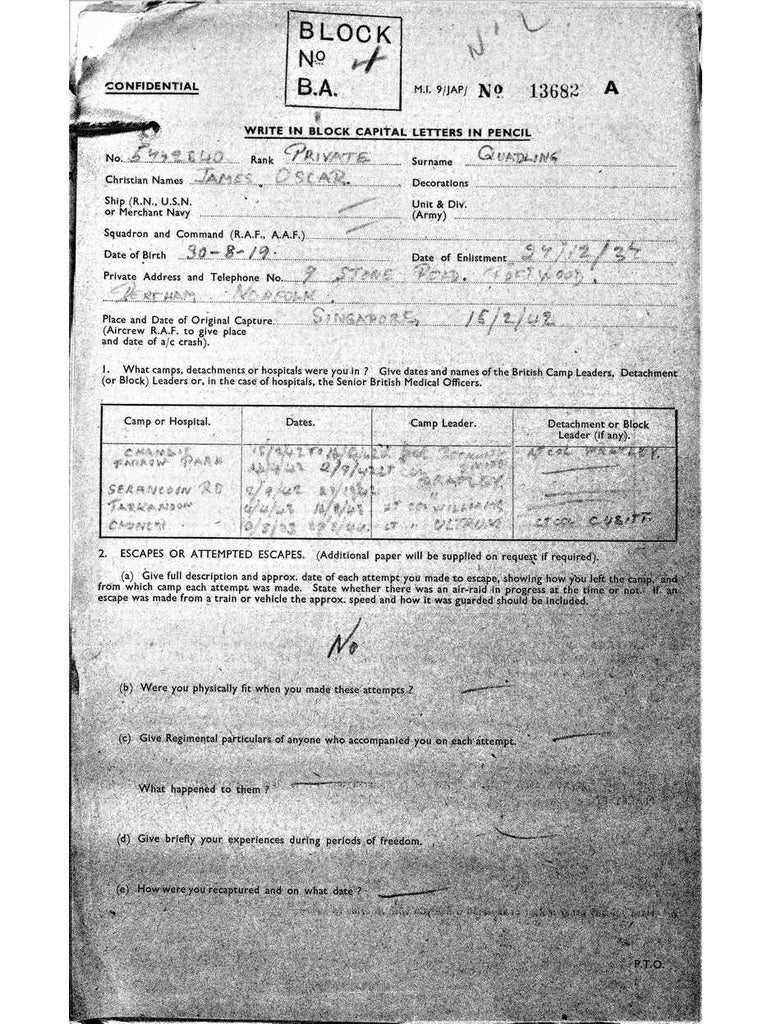 BLOCK
No 4
B.A.
NIL
CONFIDENTIAL
M.I. 9/JAP/ No 13682 A
WRITE IN BLOCK CAPITAL LETTERS IN PENCIL
No. Rank PRIVATE Surname QUADLING
Christian Names JAMES. OSCAR. Decorations
Ship (R.N., U.S.N. or Merchant Navy Unit & Div. (Army)
Squadron and Command (R.A.F., A.A.F.)
Date of Birth 30-8-19. Date of Enlistment
Private Address and Telephone No. 9 STONE ROAD. TOFTWOOD.
DEREHAM NORFOLK.
Place and Date of Original Capture SINGAPORE, 15/2/42
(Aircrew R.A.F. to give place
and date of a/c crash).
1. What camps, detachments or hospitals were you in ? Give dates and names of the British Camp Leaders, Detachment
(or Block) Leaders or, in the case of hospitals, the Senior British Medical Officers.
Camp or Hospital. Dates. Camp Leader. Detachment or Block Leader (if any).
CHANGIE
FARROW PARK
SERANGOON RD
TARKANOON LT COL WILLIAMS
CHUNGKI LT COL CUBITT.
2. ESCAPES OR ATTEMPTED ESCAPES. (Additional paper will be supplied on request if required).
(a) Give full description and approx. date of each attempt you made to escape, showing how you left the camp, and
from which camp each attempt was made. State whether there was an air-raid in progress at the time or not. If an
escape was made from a train or vehicle the approx. speed and how it was guarded should be included.
No
(b) Were you physically fit when you made these attempts ?
(c) Give Regimental particulars of anyone who accompanied you on each attempt.
What happened to them ?
(d) Give briefly your experiences during periods of freedom.
(e) How were you recaptured and on what date ?
P.T.O.